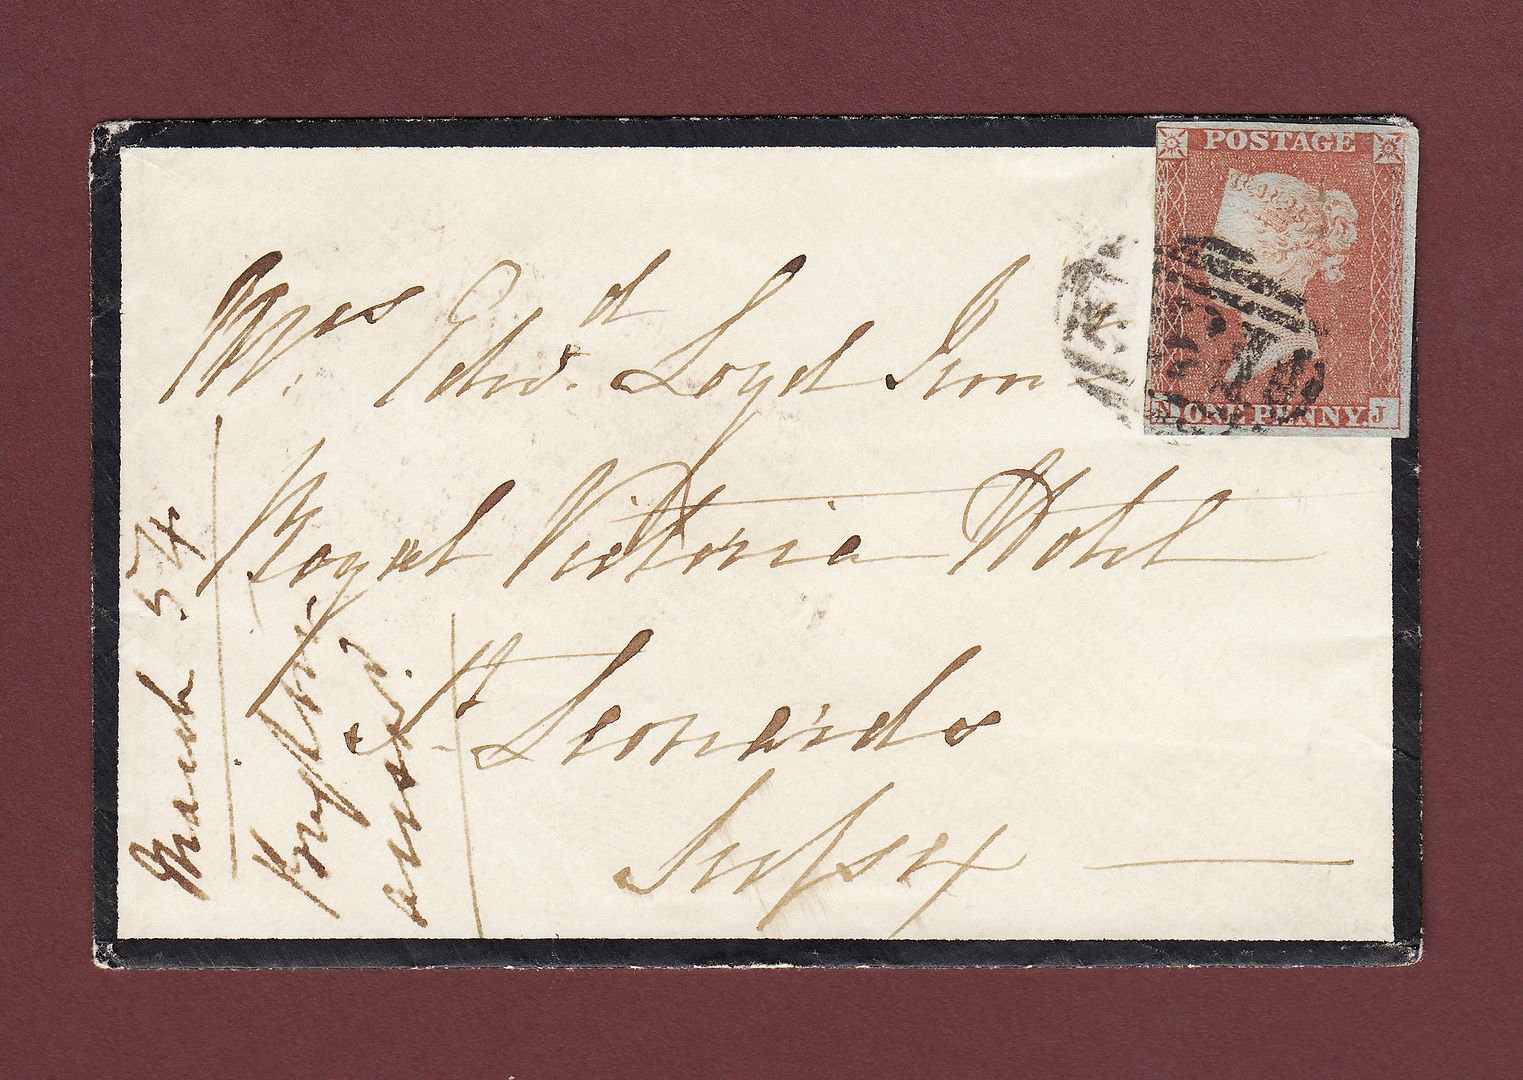 POSTAGE
ONE PENNY.
J
Mrs. Edwd. Loyd Junr
Royal Victoria Hotel
St. Leonards
Sussex
March 54
ansd.